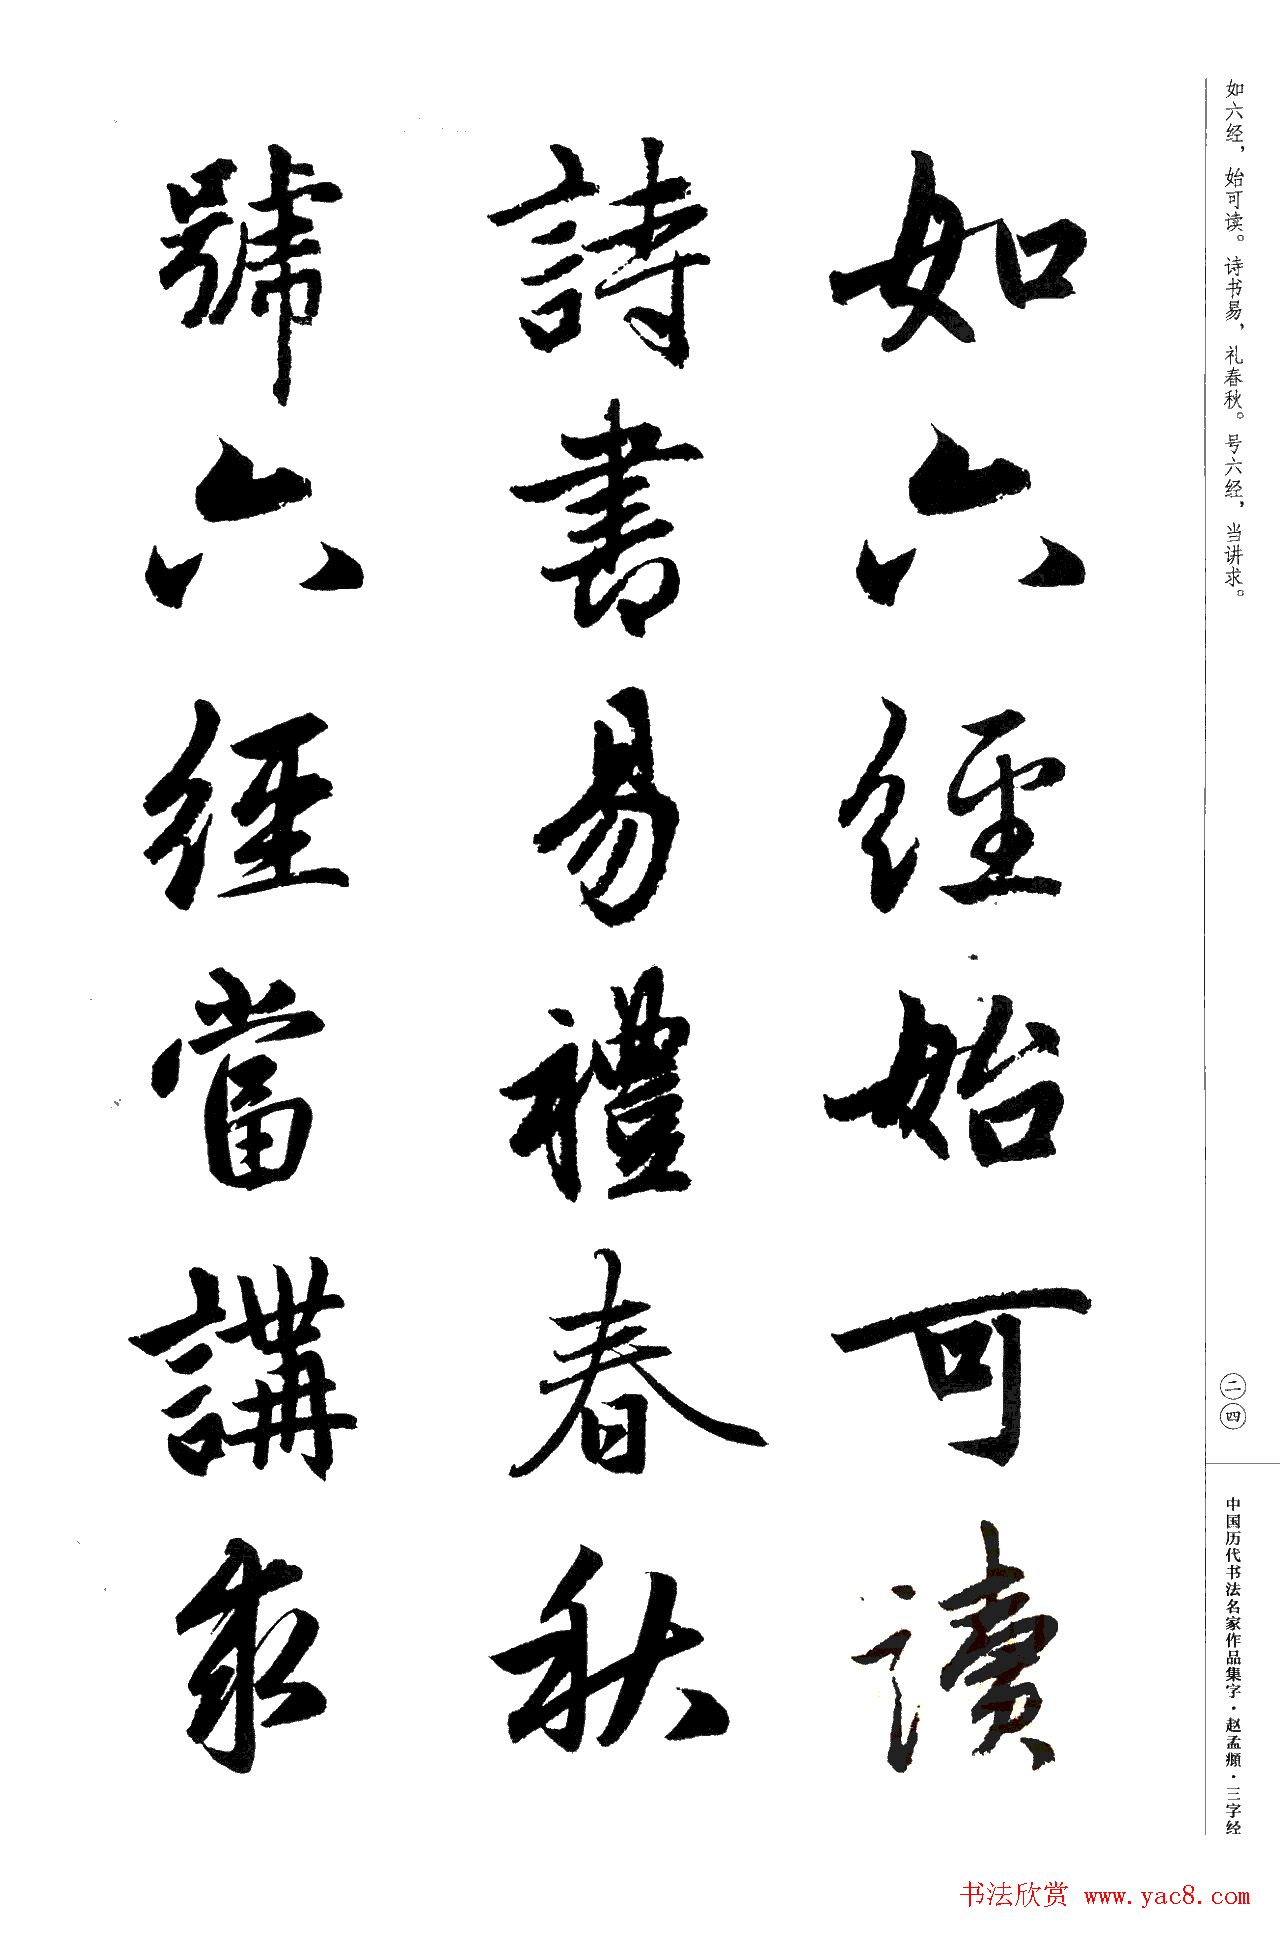 如六经，始可读。诗书易，礼春秋。号六经，当讲求。
如六經始可讀
詩書易禮春秋
號六經當講求
二四
中国历代书法名家作品集字·赵孟頫·三字经
书法欣赏 www.yac8.com